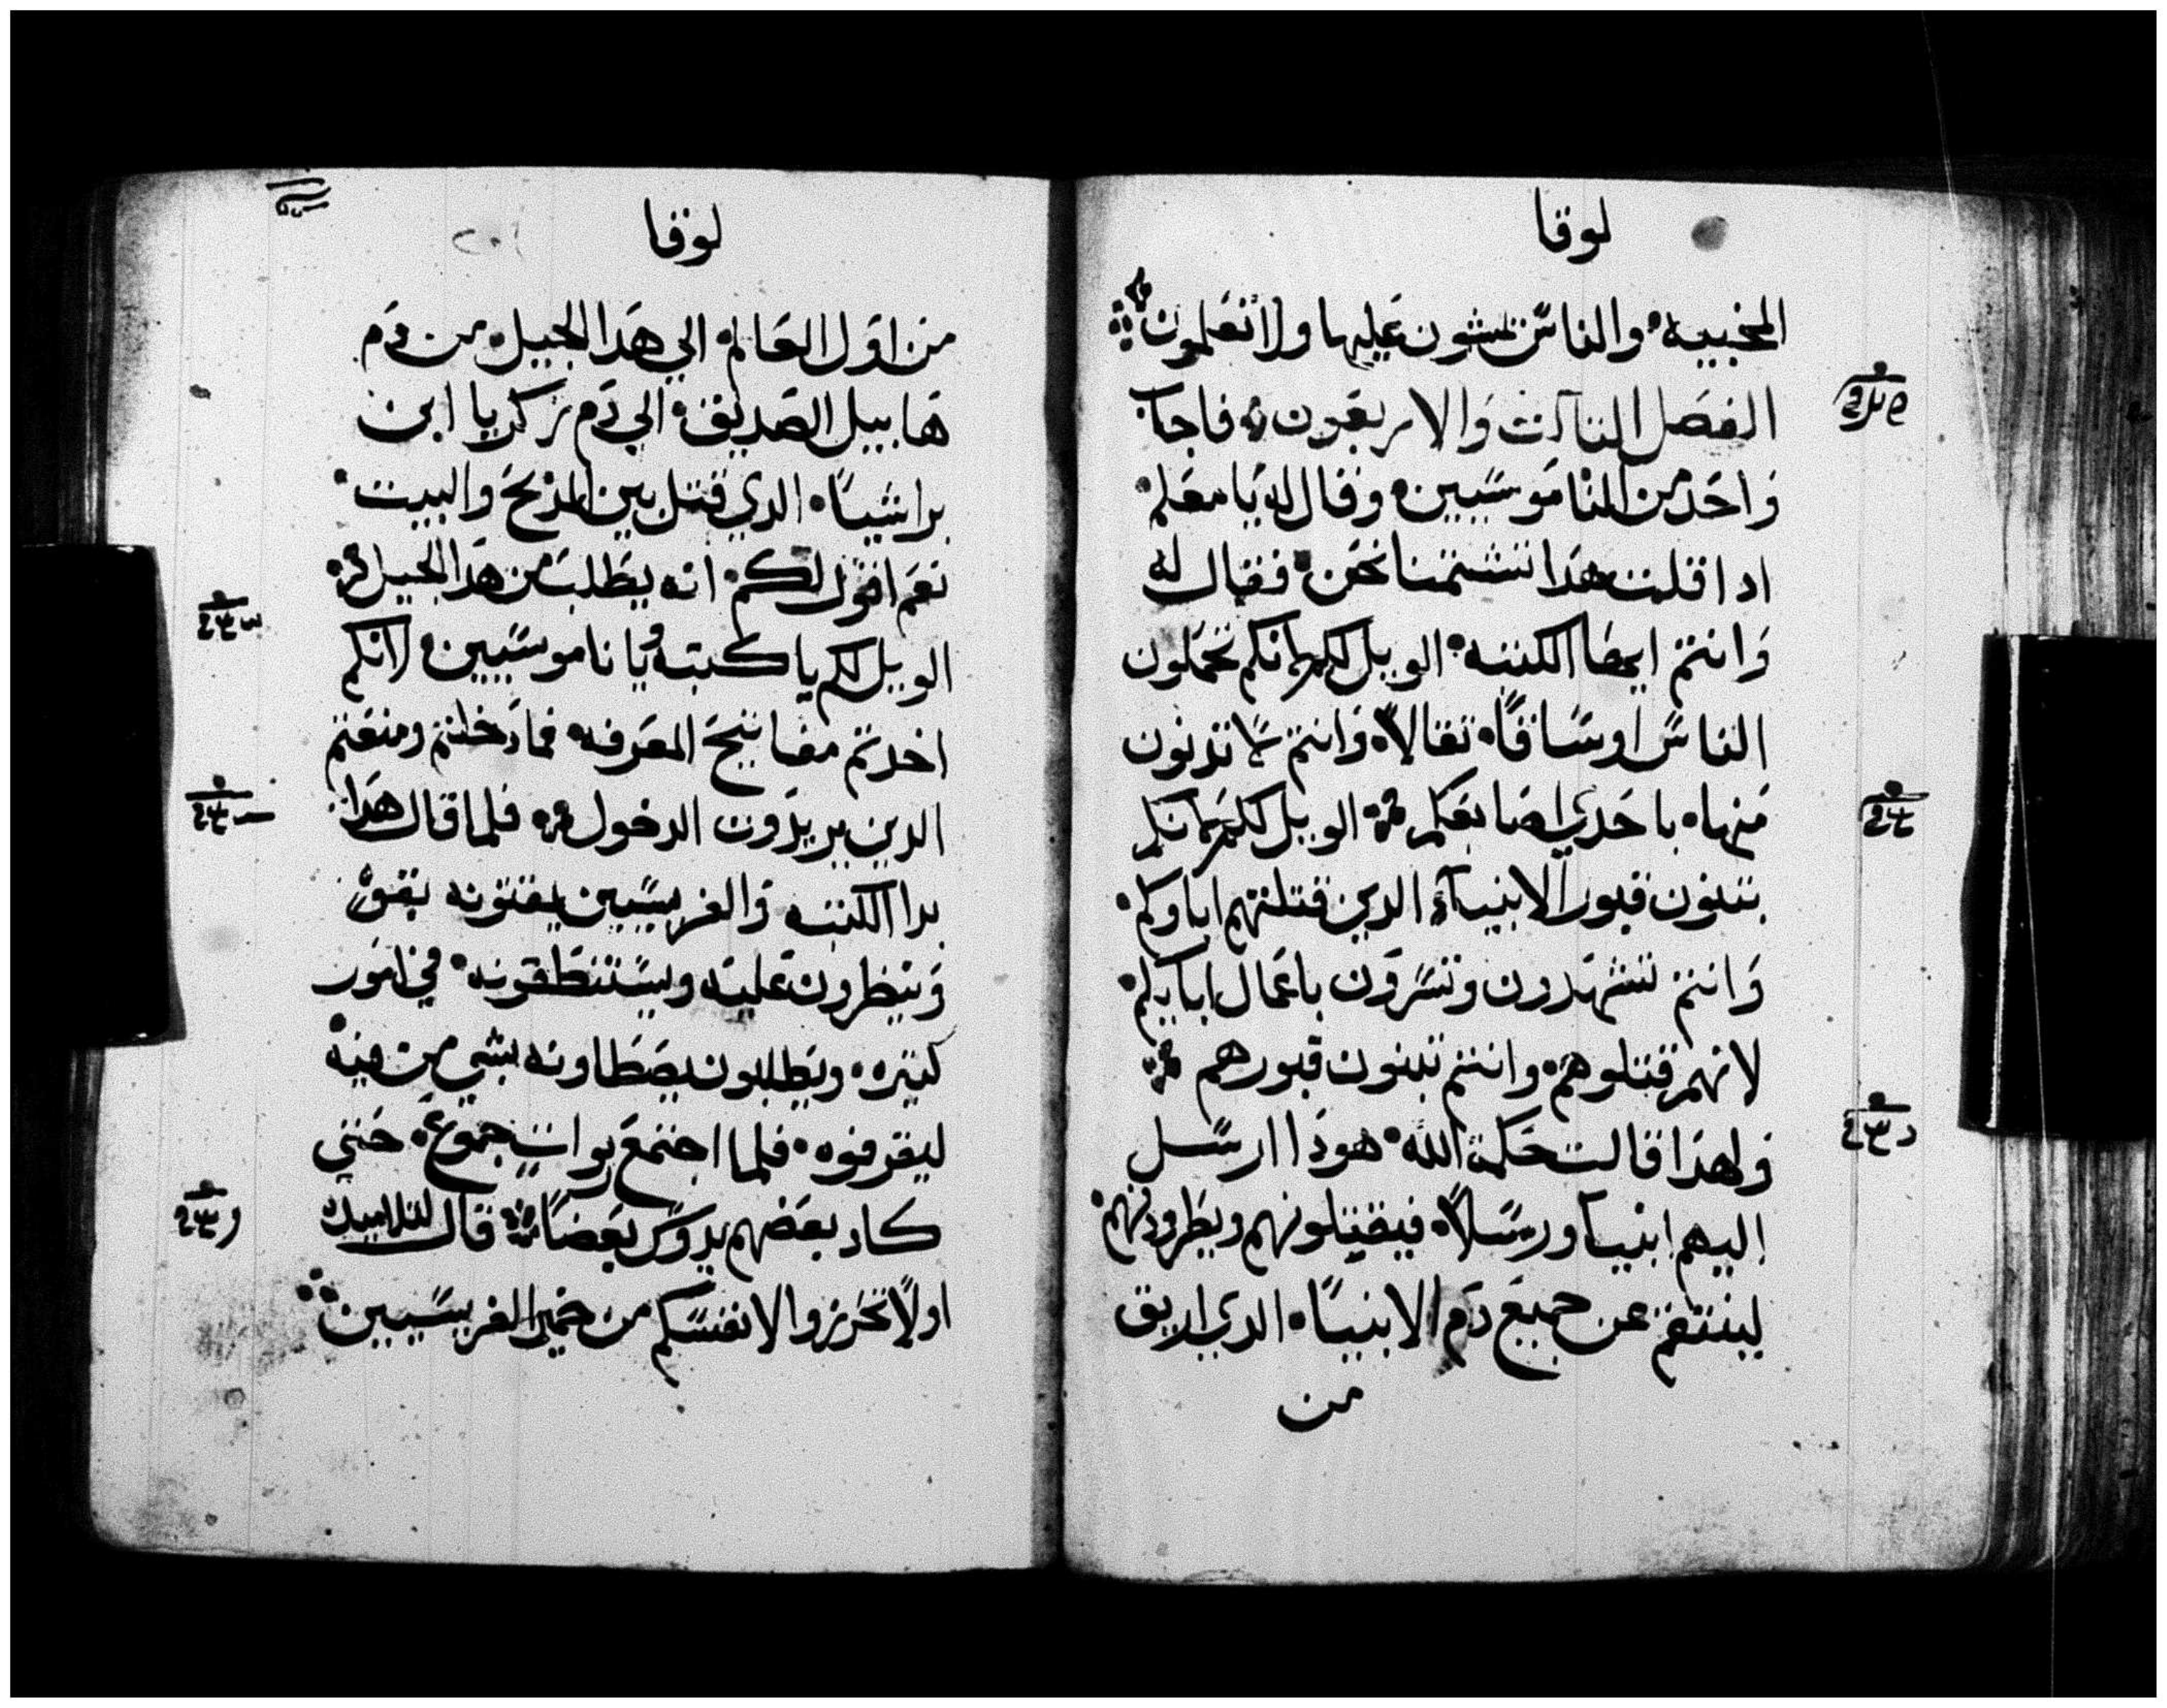 لوقا
المخبيه والناس يمشون عليها ولا تعلمون
الفصل الثالث والاربعون فاجاب
واحد من الناموسيين وقال له يا معلم
ادا قلت هدا تشتمنا نحن فقال له
وانتم ايضا الكتبه الويل لكم لانكم تحملون
الناس اوساقاً تقالاً وانتم لا تدنون
منها باحدي اصابعكم الويل لكم لانكم
تبنون قبور الانبياء الدين قتلتهم اباوكم
وانتم تشهدون وتسرون باعمال ابايكم
لانهم قتلوهم وانتم تبنون قبورهم
ولهدا قالت حكمة الله هودا ارسل
اليهم انبيا ورسلاً فيقتلونهم ويطردونهم
لينتقم عن جميع دم الانبياً الدي اريق
من
لوقا
من اول العالم الي هدا الجيل من دم
هابيل الصديق الي دم زكريا ابن
براشياً الدي قتل بين المدبح والبيت
نعم اقول لكم انه يطلب من هدا الجيل
الويل لكم يا كتبه ويا ناموسيين لانكم
اخدتم مفاتيح المعرفه فما دخلتم ومنعتم
الدين يريدون الدخول فلما قال هدا
بدا الكتبه والفريسيين يفتونه بقول
وينظرون عليه ويستنطقونه في امور
كتيره ويطلبون يصطاونه بشي من فيه
ليقرفوه فلما اجتمع ربوات جموع حتي
كاد بعضهم يدوس بعضاً قال لتلاميده
اولاً تحرزوا لانفسكم من خمير الفريسيين